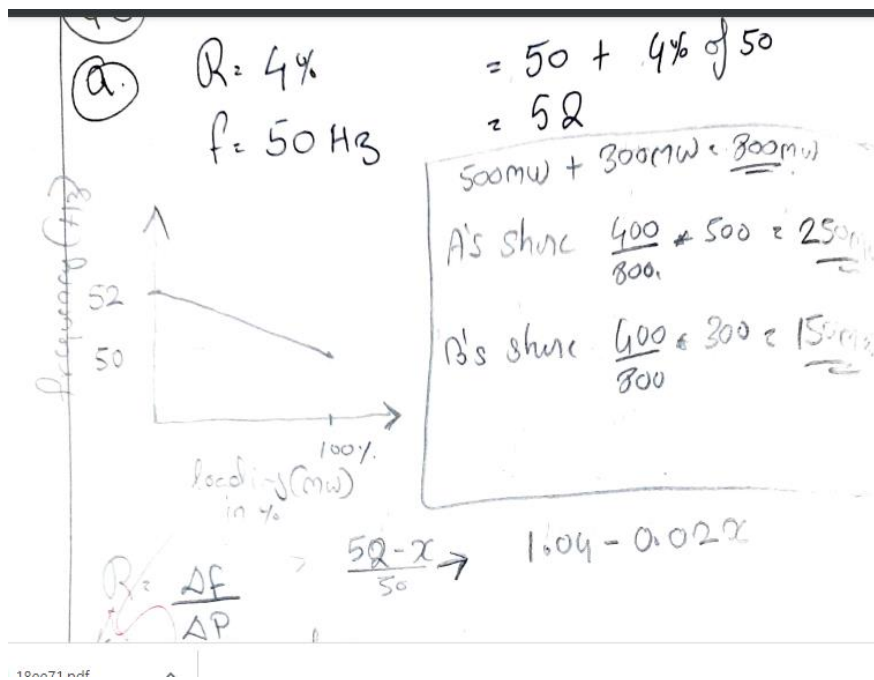 a. R = 4%
f = 50 Hz
= 50 + 4% of 50
= 52
500MW + 300MW = 800MW
A's share 400/800 * 500 = 250
B's share 400/800 * 300 = 150
frequency (Hz)
52
50
100%
loading (MW)
in %
R = Δf/ΔP
52-x/50 → 1.04 - 0.02x
18ee71.pdf